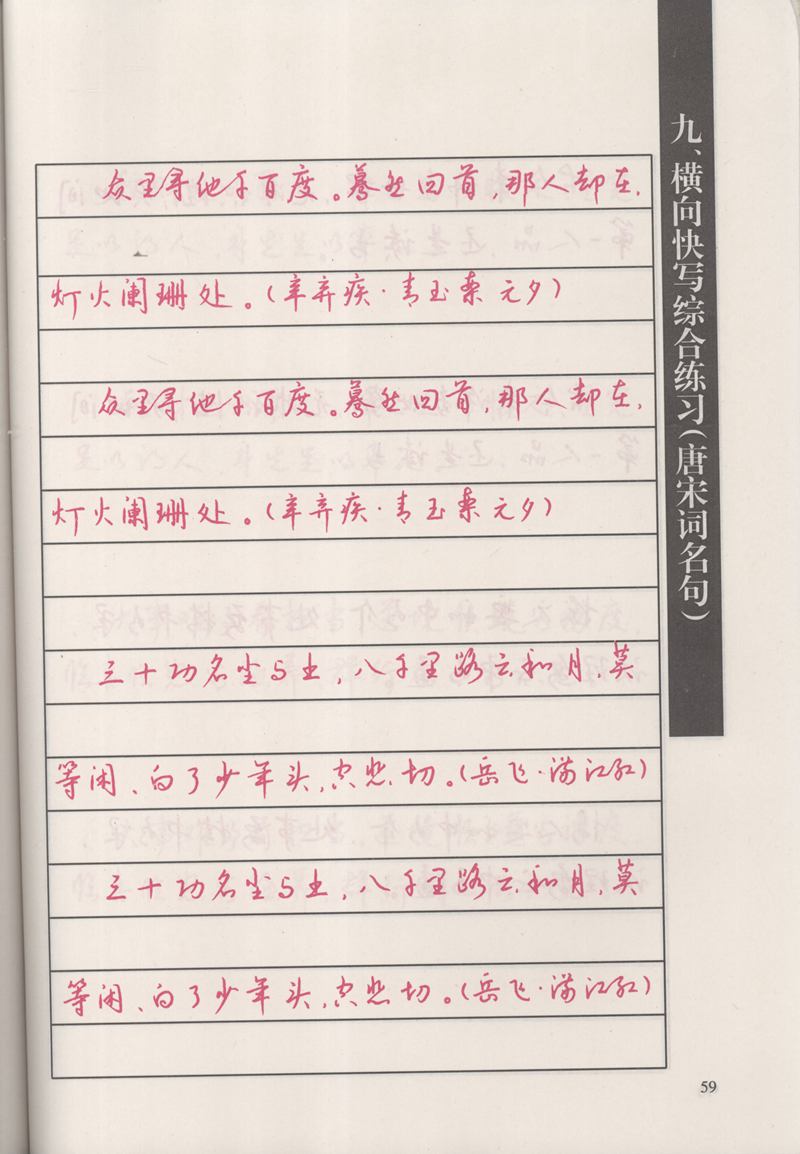 众里寻他千百度。蓦然回首,那人却在,
灯火阑珊处。(辛弃疾·青玉案 元夕)
众里寻他千百度。蓦然回首,那人却在,
灯火阑珊处。(辛弃疾·青玉案 元夕)
三十功名尘与土,八千里路云和月,莫
等闲、白了少年头,空悲切。(岳飞·满江红)
三十功名尘与土,八千里路云和月,莫
等闲、白了少年头,空悲切。(岳飞·满江红)
九、横向快写综合练习(唐宋词名句)
59